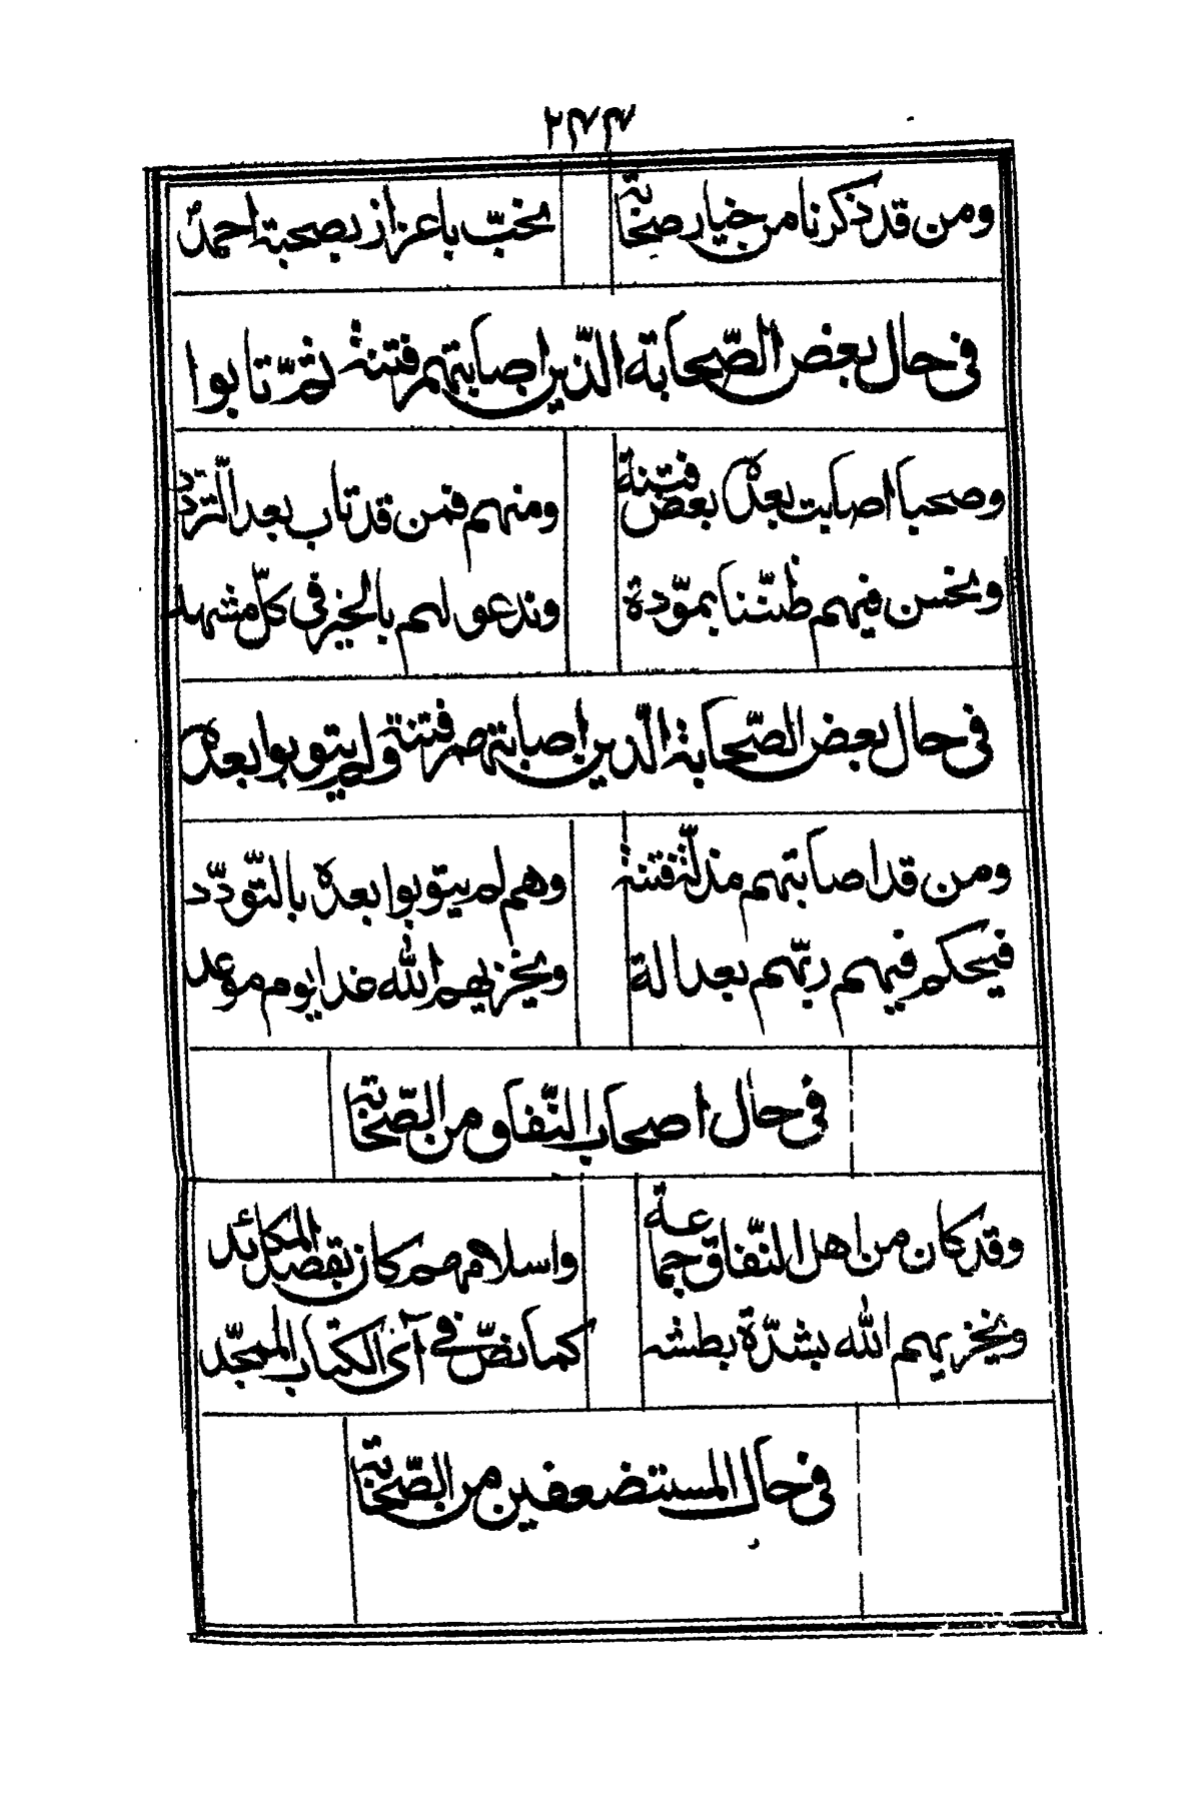 ۲۴۴
ومن قد ذكرنا من خيار صحابة نحبّ باعزاز بصحبة احمد
فى حال بعض الصّحابة الّذين اصابتهم فتنة ثمّ تابوا
وصحبا اصابت بعده بعض فتنة ومنهم فمن قد تاب بعد التّردّد
ونحسن فيهم ظنّنا بمودّة وندعو لهم بالخير فى كلّ مشهد
فى حال بعض الصّحابة الّذين اصابتهم فتنة ولم يتوبوا بعده
ومن قد اصابتهم مذلّة فتنة وهم لم يتوبوا بعده بالتّودّد
فيحكم فيهم ربّهم بعدالة ويخزيهم الله غدا يوم موعد
فى حال اصحاب النّفاق من الصّحابة
وقد كان من اهل النّفاق جماعة واسلامهم كان بقصد المكائد
ويخزيهم الله بشدّة بطشه كما نصّ فى آى الكتاب الممجّد
فى حال المستضعفين من الصّحابة